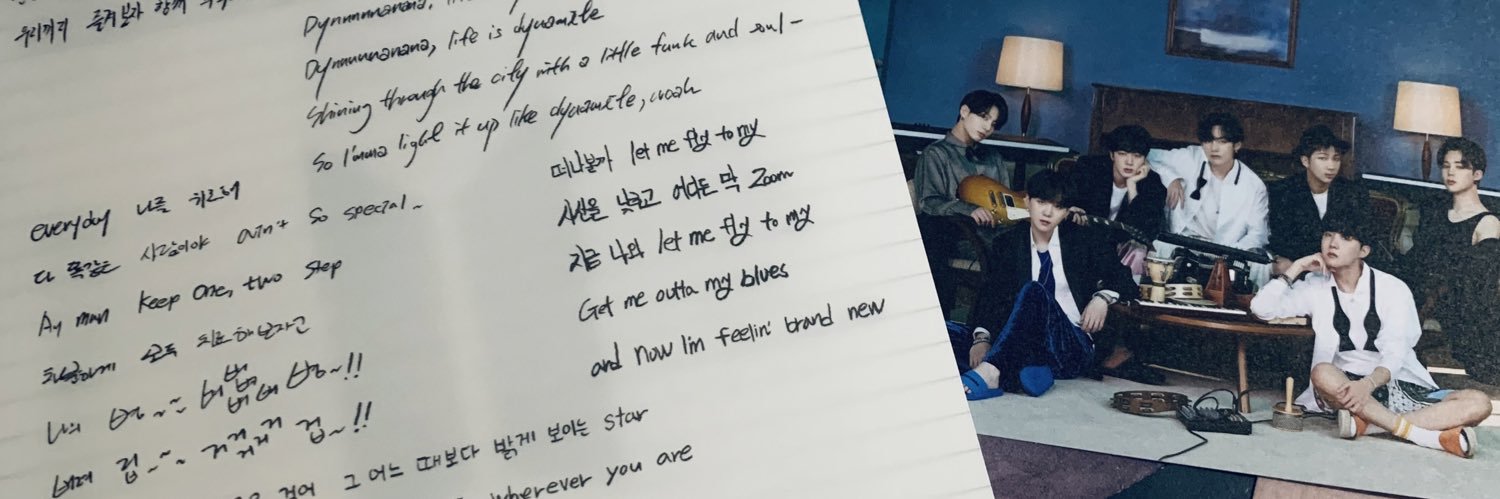 우리끼리 즐겨보자 함께
Dynnnnnanana,
Dynnnnnanana, life is dynamite
Shining through the city with a little funk and soul -
So I'mma light it up like dynamite, woah
everyday 나를 위로해
다 똑같은 사람이야 ain't so special ~
Ay man keep one, two step
차분하게 모두 치료해보자고
나의 병~~~ 버벼벼벼 병~!!
버려 겁~~~ 거거거거 겁~!!
떠나볼까 let me fly to my
시선을 낮추고 어디든 막 Zoom
지금 나와 let me fly to my
Get me outta my blues
and now I'm feelin' brand new
걸어 그 어느 때보다 밝게 보이는 star
wherever you are